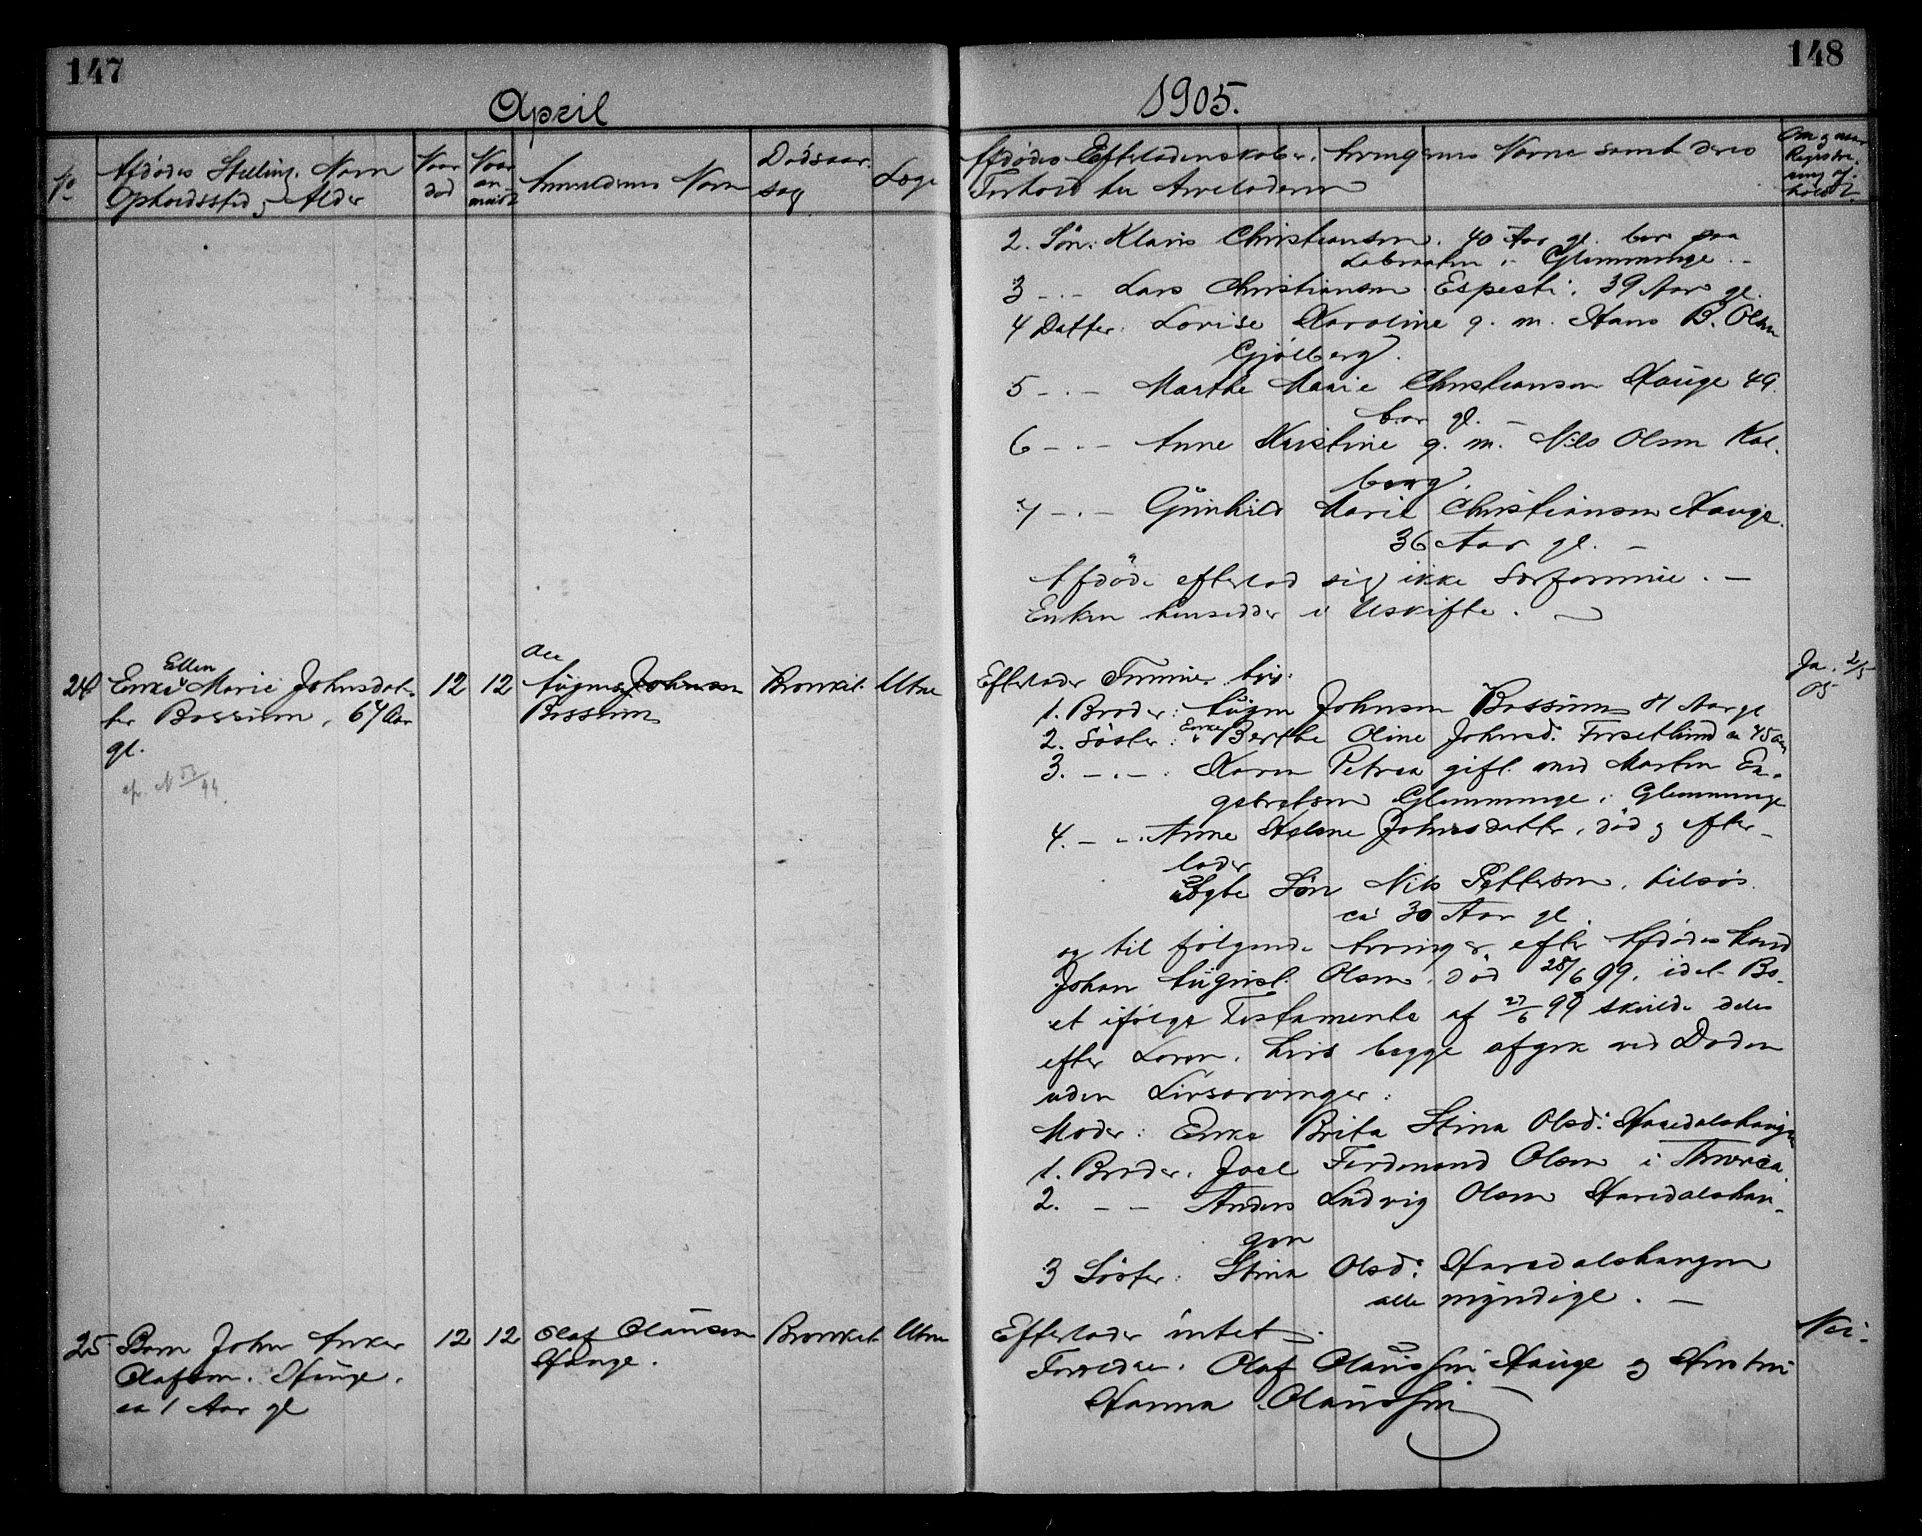 147
148
April
1905.
No
Afdødes Stilling, Navn
Opholdssted og Alder
Naar
død
Naar
an-
meldt
Anmelderens Navn
Dødsaar-
sag
Læge
Afdødes Efterladenskaber, Arvingernes Navne samt deres
Forhold til Arveladeren
Om og naar
Registre-
ring af-
holdt.
2. Søn: Klaus Christiansen. 40 Aar gl. bor paa
i Glemminge. -
3 -.- Lars Christiansen Espesti. 39 Aar gl.
4 Datter: Lovise Karoline g. m. Hans B. Olsen
Gjølberg.
5 -.- Marthe Marie Christiansen Hauge 49.
Aar gl. -
6 -.- Anne Kristine g. m. Nils Olsen Kal-
berg.
7 -.- Gunhild Marie Christiansen Hauge.
36 Aar gl. -
Afdøde efterlod sig ikke Særformue. -
Enken hensidder i Uskifte. -
24
Enke Ellen Marie Johnsdat-
ter Bossum, 67 Aar
gl.
cfr. N 52/99.
12
12
August Johnsen
Bossum
Bronkit
Utne
Efterlader Formue. Arv:
Ja. 2/5
05
1. Broder: August Johnsen Bossum 81 Aar gl
2. Søster: Enke Berthe Oline Johnsd. Torsetlund ca 75 Aar
3. -.-: Karen Petrea gift med Martin En-
gebretsen Glemminge i Glemminge
4. - -. Anne Helene Johnsdatter, død og efter-
lader
uægte Søn Nils Pettersen, tilsøs.
ca 30 Aar gl.
og til følgende Arvinger efter Afdødes Mand
Johan August Olsen, død 28/6 99, idet Bo-
et ifølge Testamente af 27/6 99 skulde deles
efter Loven, hvis begge afgik ved Døden
uden Livsarvinger:
Moder: Enke Brita Stina Olsd: Haredalshangen
1. Broder. Joel Ferdinand Olsen i Amerika
2. - - Anders Ludvig Olsen Haredalshan-
gen
3 Søster: Stina Olsd: Haredalshangen
alle myndige. -
25
Barn John Anker
Olafsen. Hauge.
ca 1 Aar gl
12
12
Olaf Olaussen
Hauge.
Bronkit
Utne
Efterlader intet.
Nei-
Forældre. Olaf Olaussen Hauge og Hustru
Hanna Olaussen